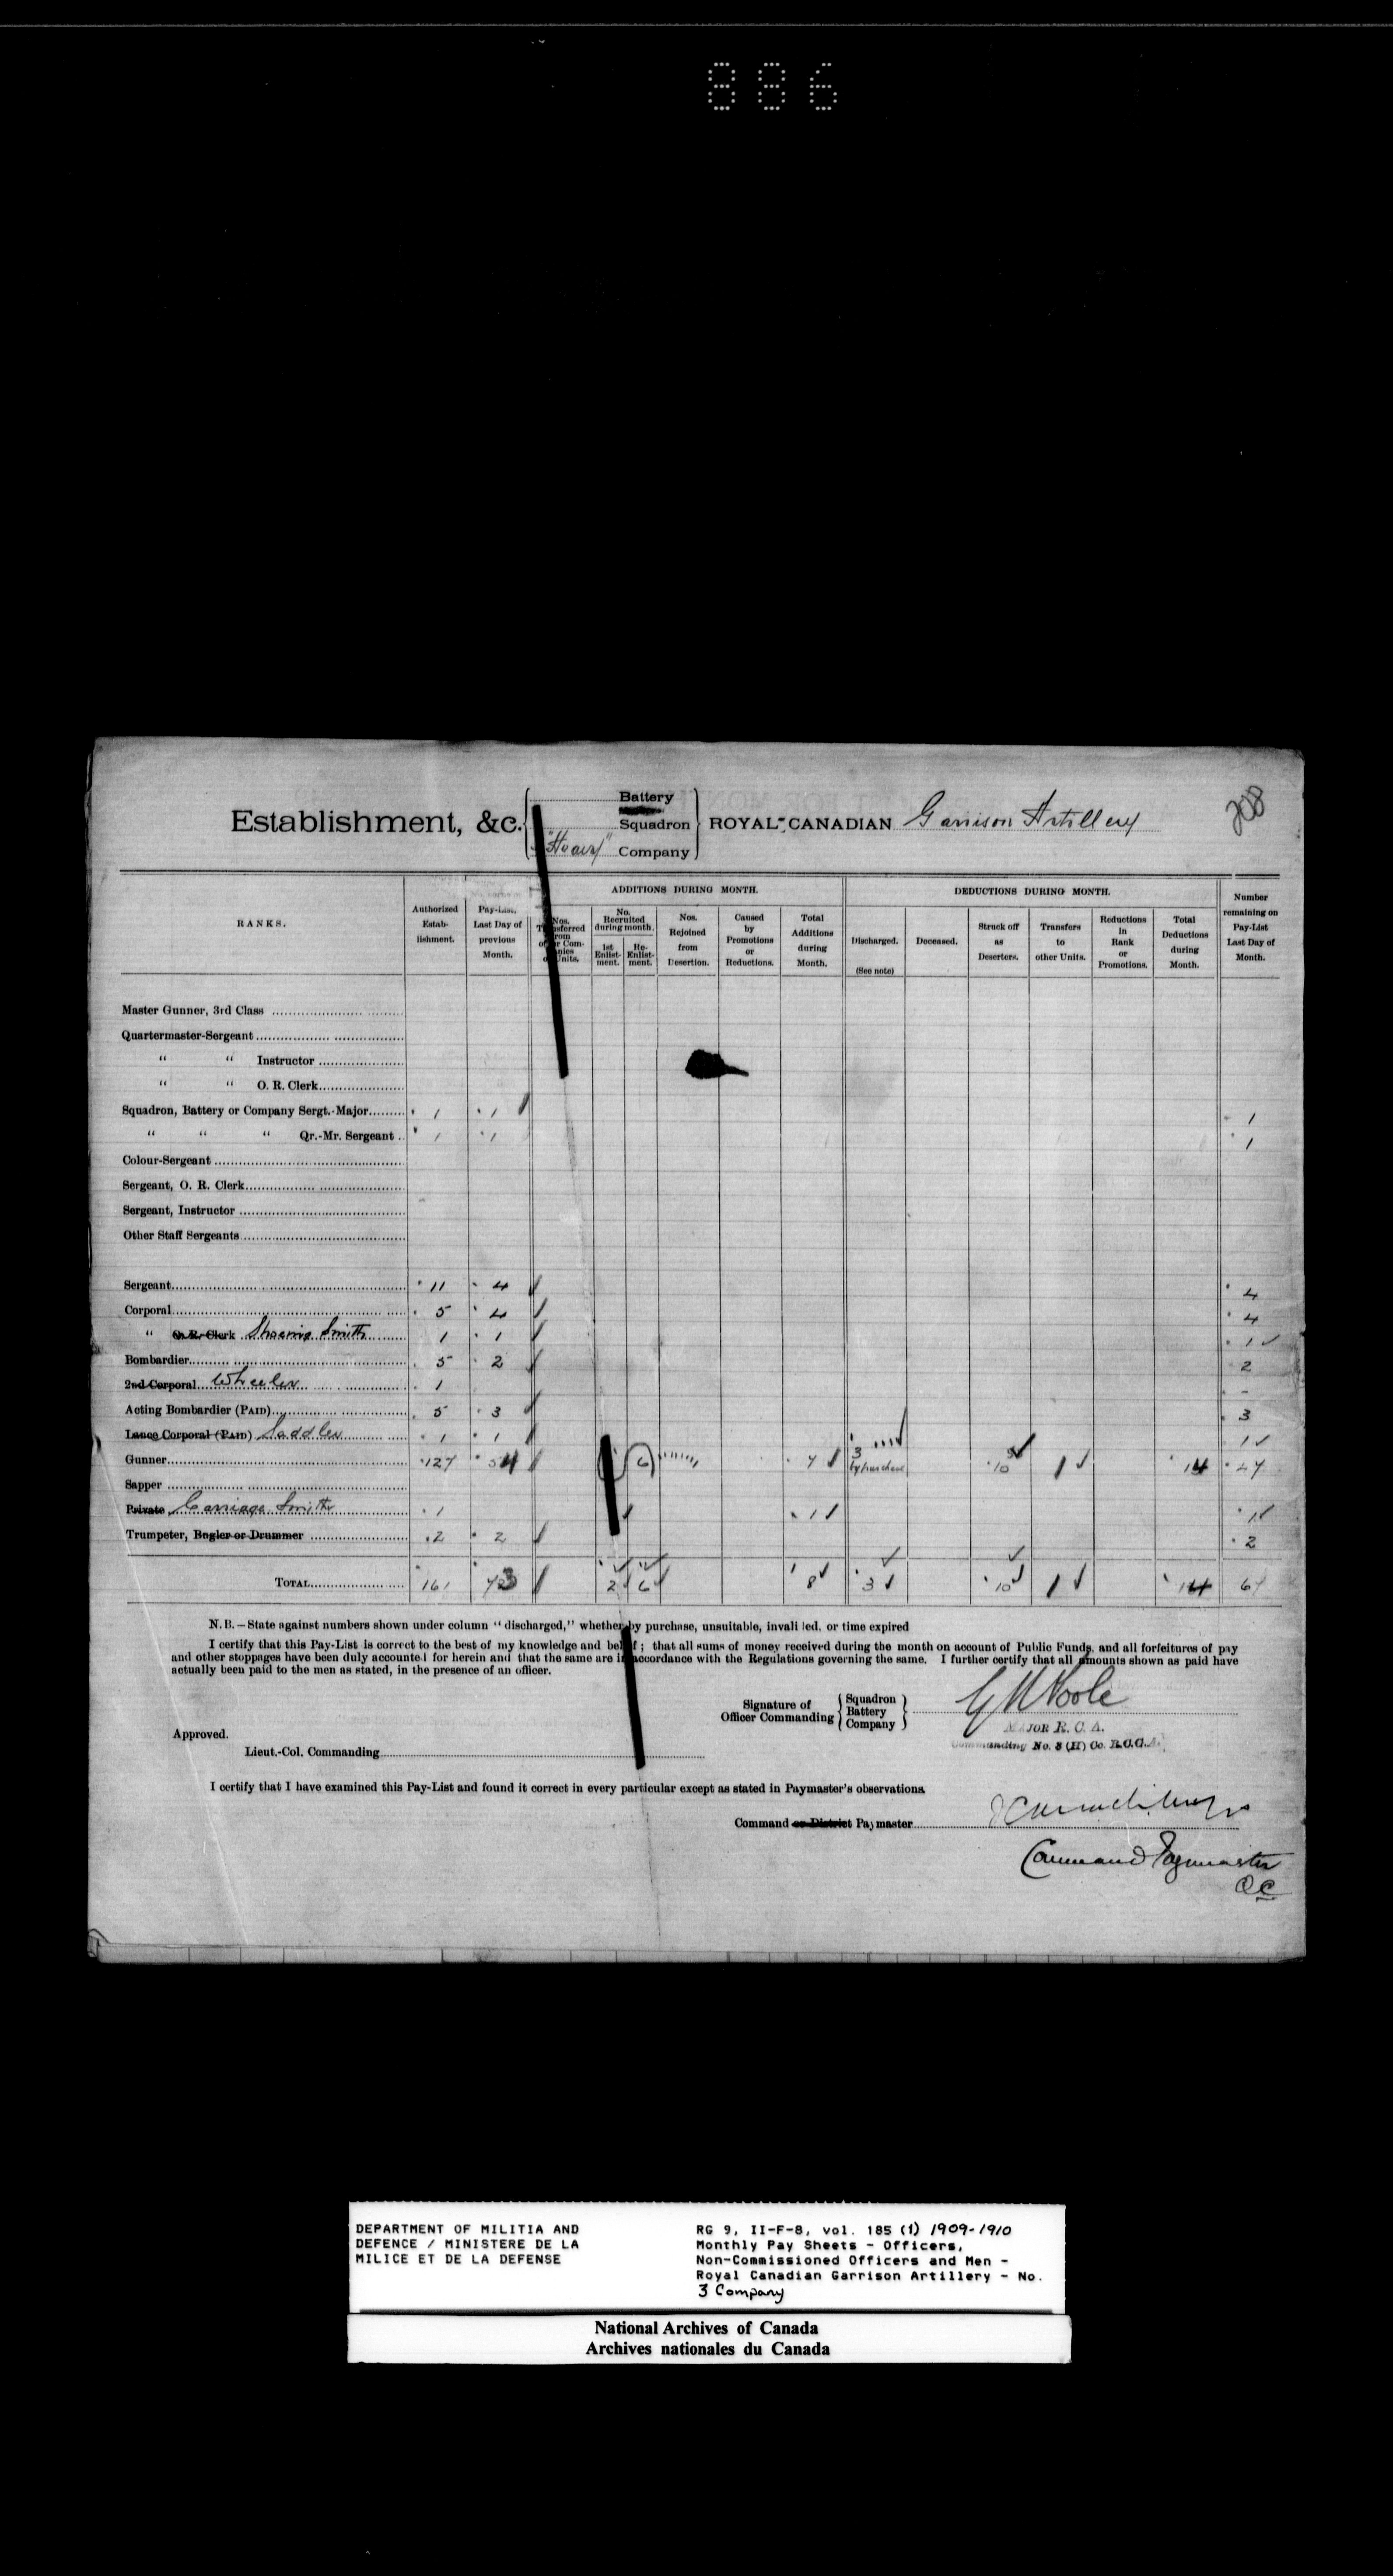 886
208
Battery
Establishment, &c. Squadron ROYAL CANADIAN Garrison Artillery
"Heavy" Company
RANKS.
Authorized Estab- lishment.
Pay-List, Last Day of previous Month.
ADDITIONS DURING MONTH.
Nos. Transferred from other Com- panies or Units.
No. Recruited during month.
1st Enlist- ment.
Re- Enlist- ment.
Nos. Rejoined from Desertion.
Caused by Promotions or Reductions.
Total Additions during Month.
DEDUCTIONS DURING MONTH.
Discharged. (See note)
Deceased.
Struck off as Deserters.
Transfers to other Units.
Reductions in Rank or Promotions.
Total Deductions during Month.
Number remaining on Pay-List Last Day of Month.
Master Gunner, 3rd Class
Quartermaster-Sergeant
" " Instructor
" " O. R. Clerk
Squadron, Battery or Company Sergt.-Major 1 1 1
" " " Qr.-Mr. Sergeant 1 1 1
Colour-Sergeant
Sergeant, O. R. Clerk
Sergeant, Instructor
Other Staff Sergeants
Sergeant 11 4 4
Corporal 5 4 4
" O. R. Clerk Shoeing Smith 1 1 1
Bombardier 5 2 2
2nd Corporal Wheeler 1 -
Acting Bombardier (PAID) 5 3 3
Lance Corporal (PAID) Saddler 1 1 1
Gunner 127 54 6 7 3 by purchase 10 1 14 47
Sapper
Private Carriage Smith 1 1 1
Trumpeter, Bugler or Drummer 2 2 2
TOTAL 161 73 2 6 8 3 10 1 14 67
N.B.—State against numbers shown under column "discharged," whether by purchase, unsuitable, invalided. or time expired
I certify that this Pay-List is correct to the best of my knowledge and belief; that all sums of money received during the month on account of Public Funds, and all forfeitures of pay
and other stoppages have been duly accounted for herein and that the same are in accordance with the Regulations governing the same. I further certify that all amounts shown as paid have
actually been paid to the men as stated, in the presence of an officer.
Signature of Officer Commanding
Squadron
Battery
Company
MAJOR R. C. A.
Commanding No. 3 (H) Co. R.C.G.A.
Approved.
Lieut.-Col. Commanding
I certify that I have examined this Pay-List and found it correct in every particular except as stated in Paymaster's observations.
Command or District Paymaster
Command Paymaster
QC
DEPARTMENT OF MILITIA AND
DEFENCE / MINISTERE DE LA
MILICE ET DE LA DEFENSE
RG 9, II-F-8, vol. 185 (1) 1909-1910
Monthly Pay Sheets - Officers,
Non-Commissioned Officers and Men -
Royal Canadian Garrison Artillery - No.
3 Company
National Archives of Canada
Archives nationales du Canada